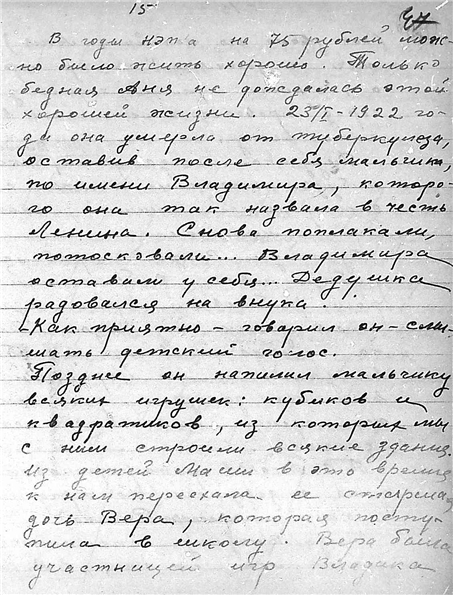 15
В годы нэпа на 75 рублей мож-
но было жить хорошо. Только
бедная Аня не дождалась этой
хорошей жизни. 23/I-1922 го-
да она умерла от туберкулеза,
оставив после себя мальчика,
по имени Владимира, которо-
го она так назвала в честь
Ленина. Снова поплакали,
потосковали... Владимира
оставили у себя... Дедушка
радовался на внука.
-Как приятно - говорил он - слы-
шать детский голос.
Позднее он напилил мальчику
всяких игрушек: кубиков и
квадратиков, из которых мы
с ним строили всякие здания.
Из детей Маши в это время
к нам переехала ее старшая
дочь Вера, которая посту-
пила в школу. Вера была
участницей игр Владика